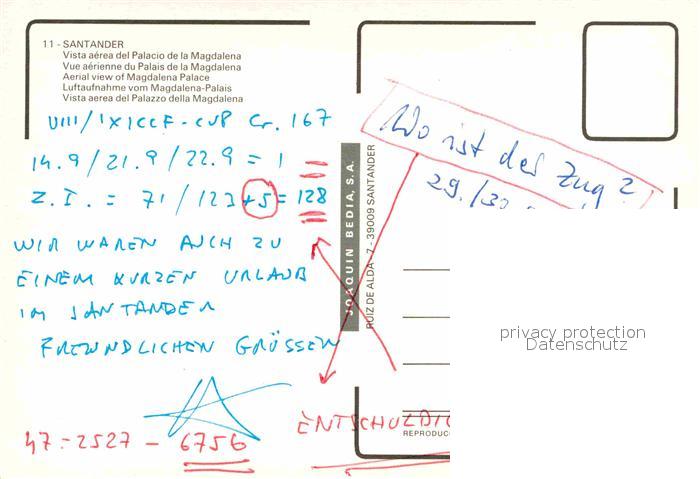 11 - SANTANDER
Vista aérea del Palacio de la Magdalena
Vue aérienne du Palais de la Magdalena
Aerial view of Magdalena Palace
Luftaufnahme vom Magdalena-Palais
Vista aerea del Palazzo della Magdalena
VIII/IXICCF-CUP Cr. 167
14.9/21.9/22.9 = 1
Z.I. = 71/123+5=128
WIR WAREN AUCH ZU
EINEM KURZEN URLAUB
IM SANTANDER
FREUNDLICHEN GRÜSSEN
47=2527 - 6756
JOAQUIN BEDIA, S.A.
RUIZ DE ALDA - 7 - 39009 SANTANDER
Wo ist der Zug?
29./30
ENTSCHULDIG
REPRODUC
privacy protection
Datenschutz